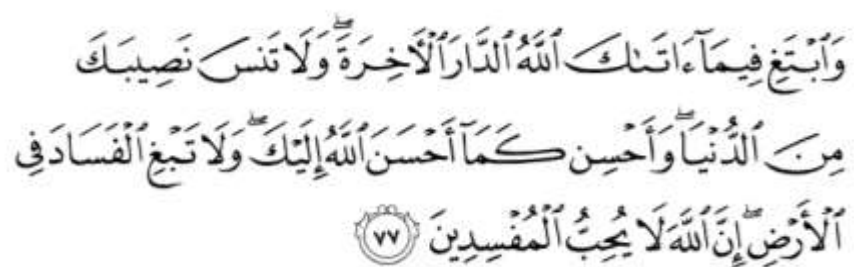 وَٱبۡتَغِ فِيمَآ ءَاتَىٰكَ ٱللَّهُ ٱلدَّارَ ٱلۡأَخِرَةَۖ وَلَا تَنسَ نَصِيبَكَ
مِنَ ٱلدُّنۡيَاۖ وَأَحۡسِن كَمَآ أَحۡسَنَ ٱللَّهُ إِلَيۡكَۖ وَلَا تَبۡغِ ٱلۡفَسَادَ فِي
ٱلۡأَرۡضِۖ إِنَّ ٱللَّهَ لَا يُحِبُّ ٱلۡمُفۡسِدِينَ ٧٧